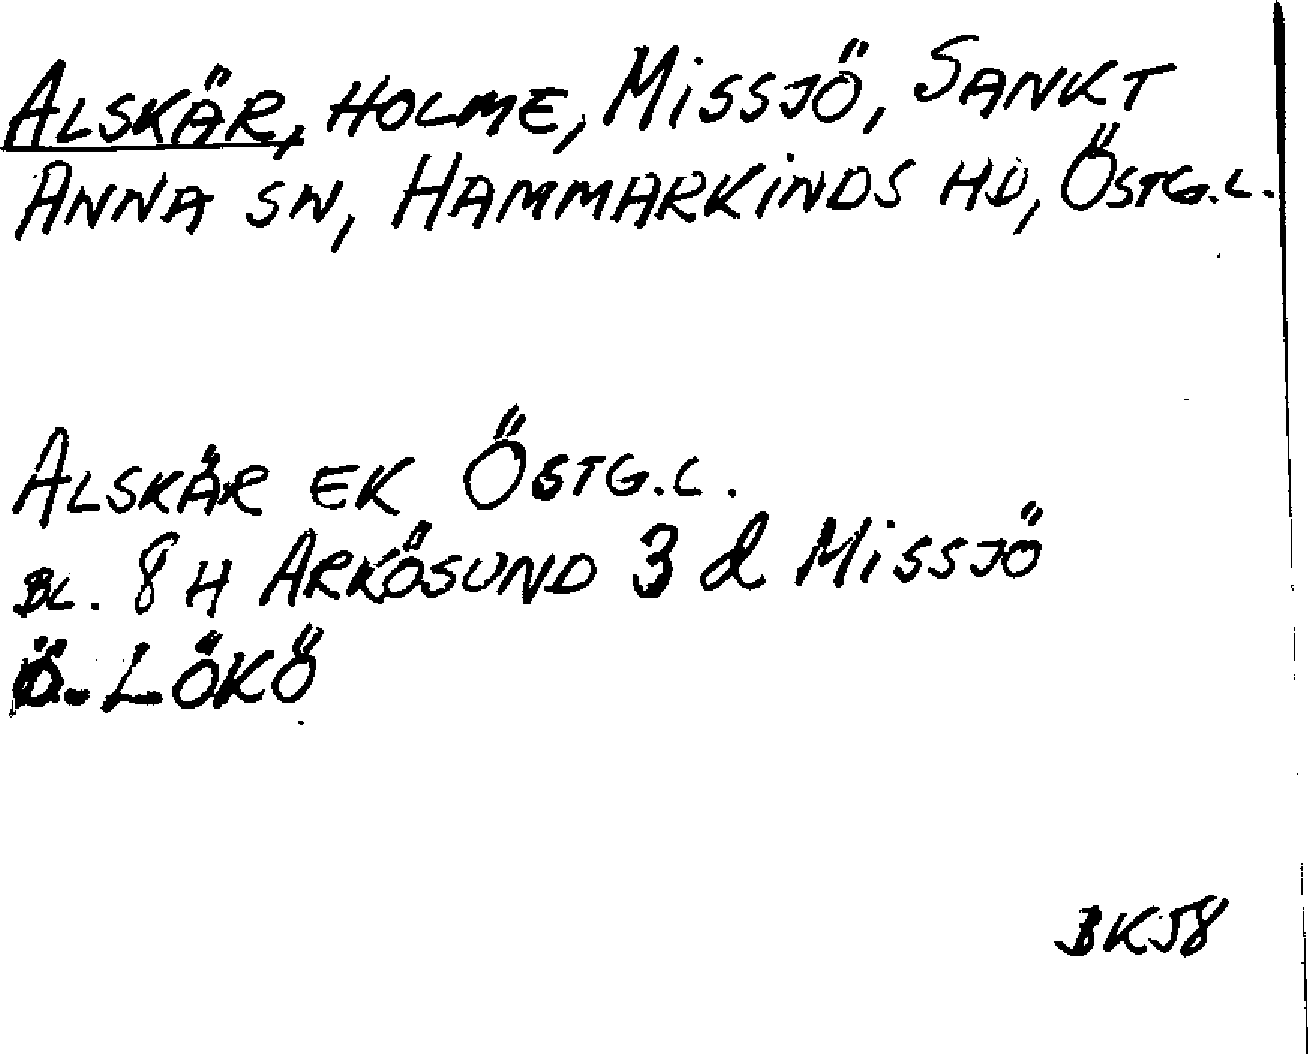 ALSKÄR, HOLME, MISSJÖ, SANKT
ANNA SN, HAMMARKINDS HD, ÖSTG.L.
ALSKÄR EK ÖSTG.L.
BL. 8H ARKÖSUND 3d MISSJÖ
Ö. LÖKÖ
BK58